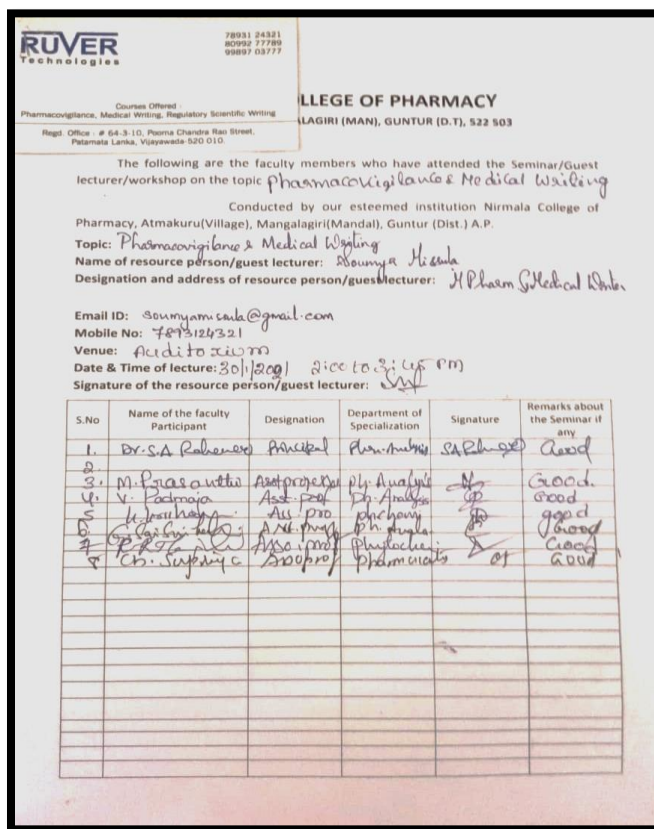 RUVER
Technologies
78931 24321
80992 77789
99897 03777
Courses Offered :
Pharmacovigilance, Medical Writing, Regulatory Scientific Writing
Regd. Office : # 64-3-10, Poorna Chandra Rao Street,
Patamata Lanka, Vijayawada-520 010.
LLEGE OF PHARMACY
LAGIRI (MAN), GUNTUR (D.T), 522 503
The following are the faculty members who have attended the Seminar/Guest
lecturer/workshop on the topic Pharmacovigilance & Medical Writing
Conducted by our esteemed institution Nirmala College of
Pharmacy, Atmakuru(Village), Mangalagiri(Mandal), Guntur (Dist.) A.P.
Topic: Pharmacovigilance & Medical Writing
Name of resource person/guest lecturer: Soumya
Designation and address of resource person/guest lecturer: M Pharm Medical Writer
Email ID: @gmail.com
Mobile No: 7893124321
Venue: Auditorium
Date & Time of lecture: 30/1/2021 2:00 to 3:45 PM
Signature of the resource person/guest lecturer:
S.No Name of the faculty Participant Designation Department of Specialization Signature Remarks about the Seminar if any
1. Dr. S.A Principal Analysis Good
2.
3. M. Prasanthi Ph. Analysis Good.
4. V. Padmaja Asst. prof Ph. Analysis Good
5 Ass. pro good
6. Good
7 Asso. prof Good
8 Ch. Supriya Good